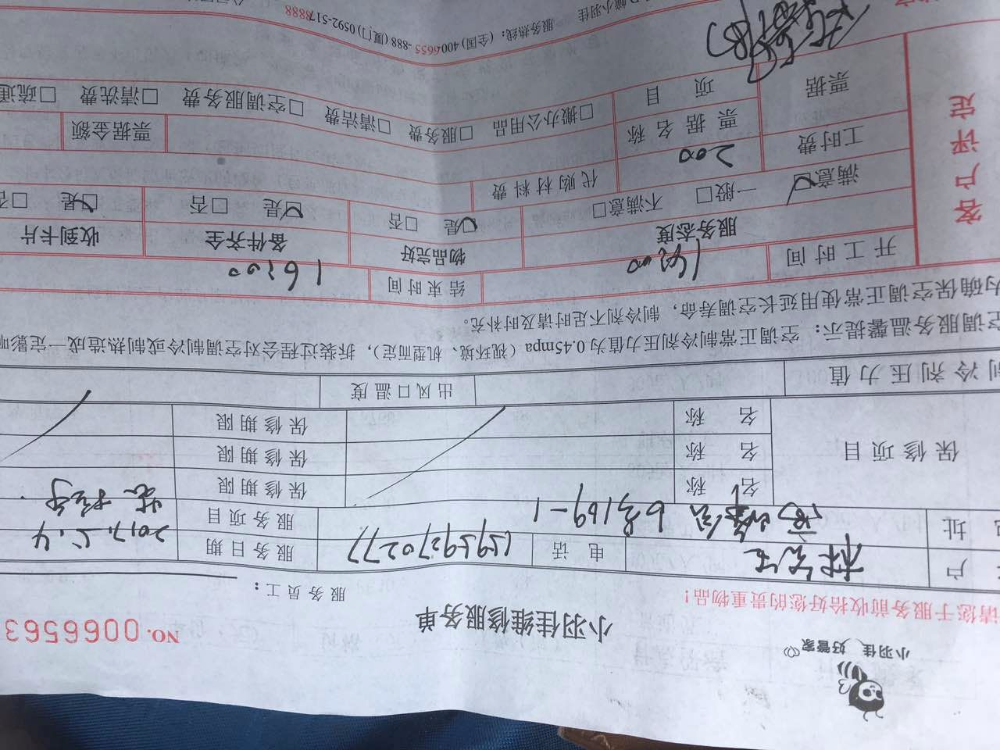 小羽佳 好管家
小羽佳维修服务单
NO. 0066563
请您于服务前收拾好您的贵重物品!
服务员工:
户 林先生 电话 15959270277 服务日期 2017.5.4
址 6号169-1 服务项目
保修项目 名称 保修期限
名称 保修期限
名称 保修期限
制冷剂压力值 出风口温度
空调服务温馨提示: 空调正常制冷剂压力值为0.45mpa (视环境、机型而定), 拆装过程会对空调制冷或制热造成一定影响
为确保空调正常使用延长空调寿命, 制冷剂不足时请及时补充。
客户评定
开工时间 结束时间 16:00
服务态度 物品完好 备件齐全 收到卡片
满意☑ 一般□ 不满意□ ☑是 □否 ☑是 □否 ☑是 □否
工时费 200 代购材料费
票据 票据名称 票据金额
项目 □搬办公用品 □服务费 □清洁费 □空调服务费 □清洗费
服务热线: (全国) 400-6655-888 (厦门) 0592-5178888